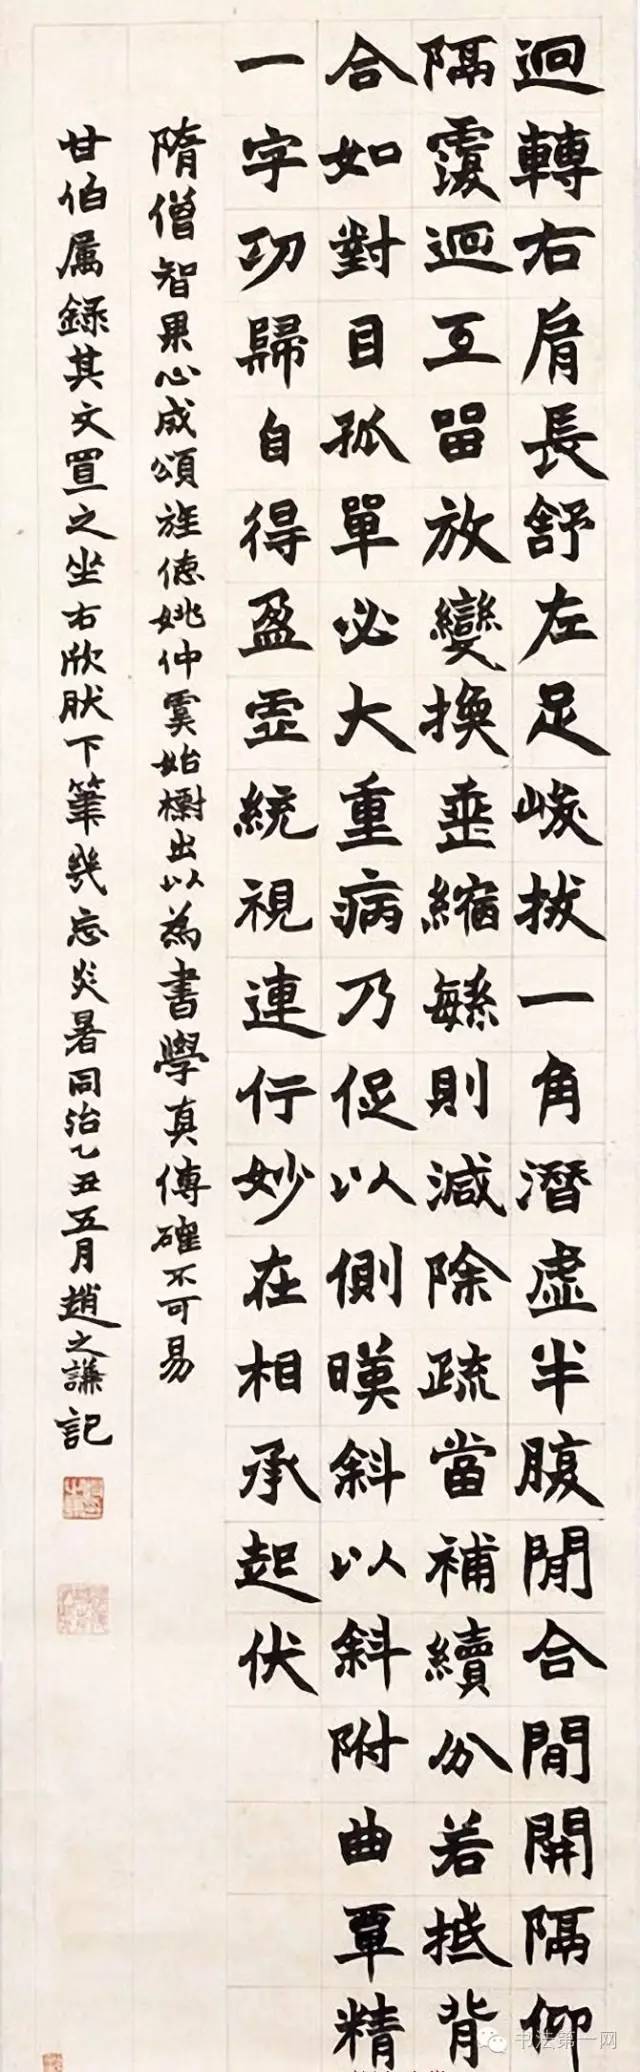 迴轉右肩長舒左足峻拔一角潛虛半腹閒合閒開隔仰
隔覆迴互留放變換垂縮繁則減除疏當補續分若抵背
合如對目孤單必大重病乃促以側暎斜以斜附曲覃精
一字功歸自得盈虛統視連行妙在相承起伏
隋僧智果心成頌旌德姚仲虞始出以為書學真傳確不可易
甘伯属錄其文置之坐右欣肰下筆幾忘炎暑同治乙丑五月趙之謙記
书法第一网